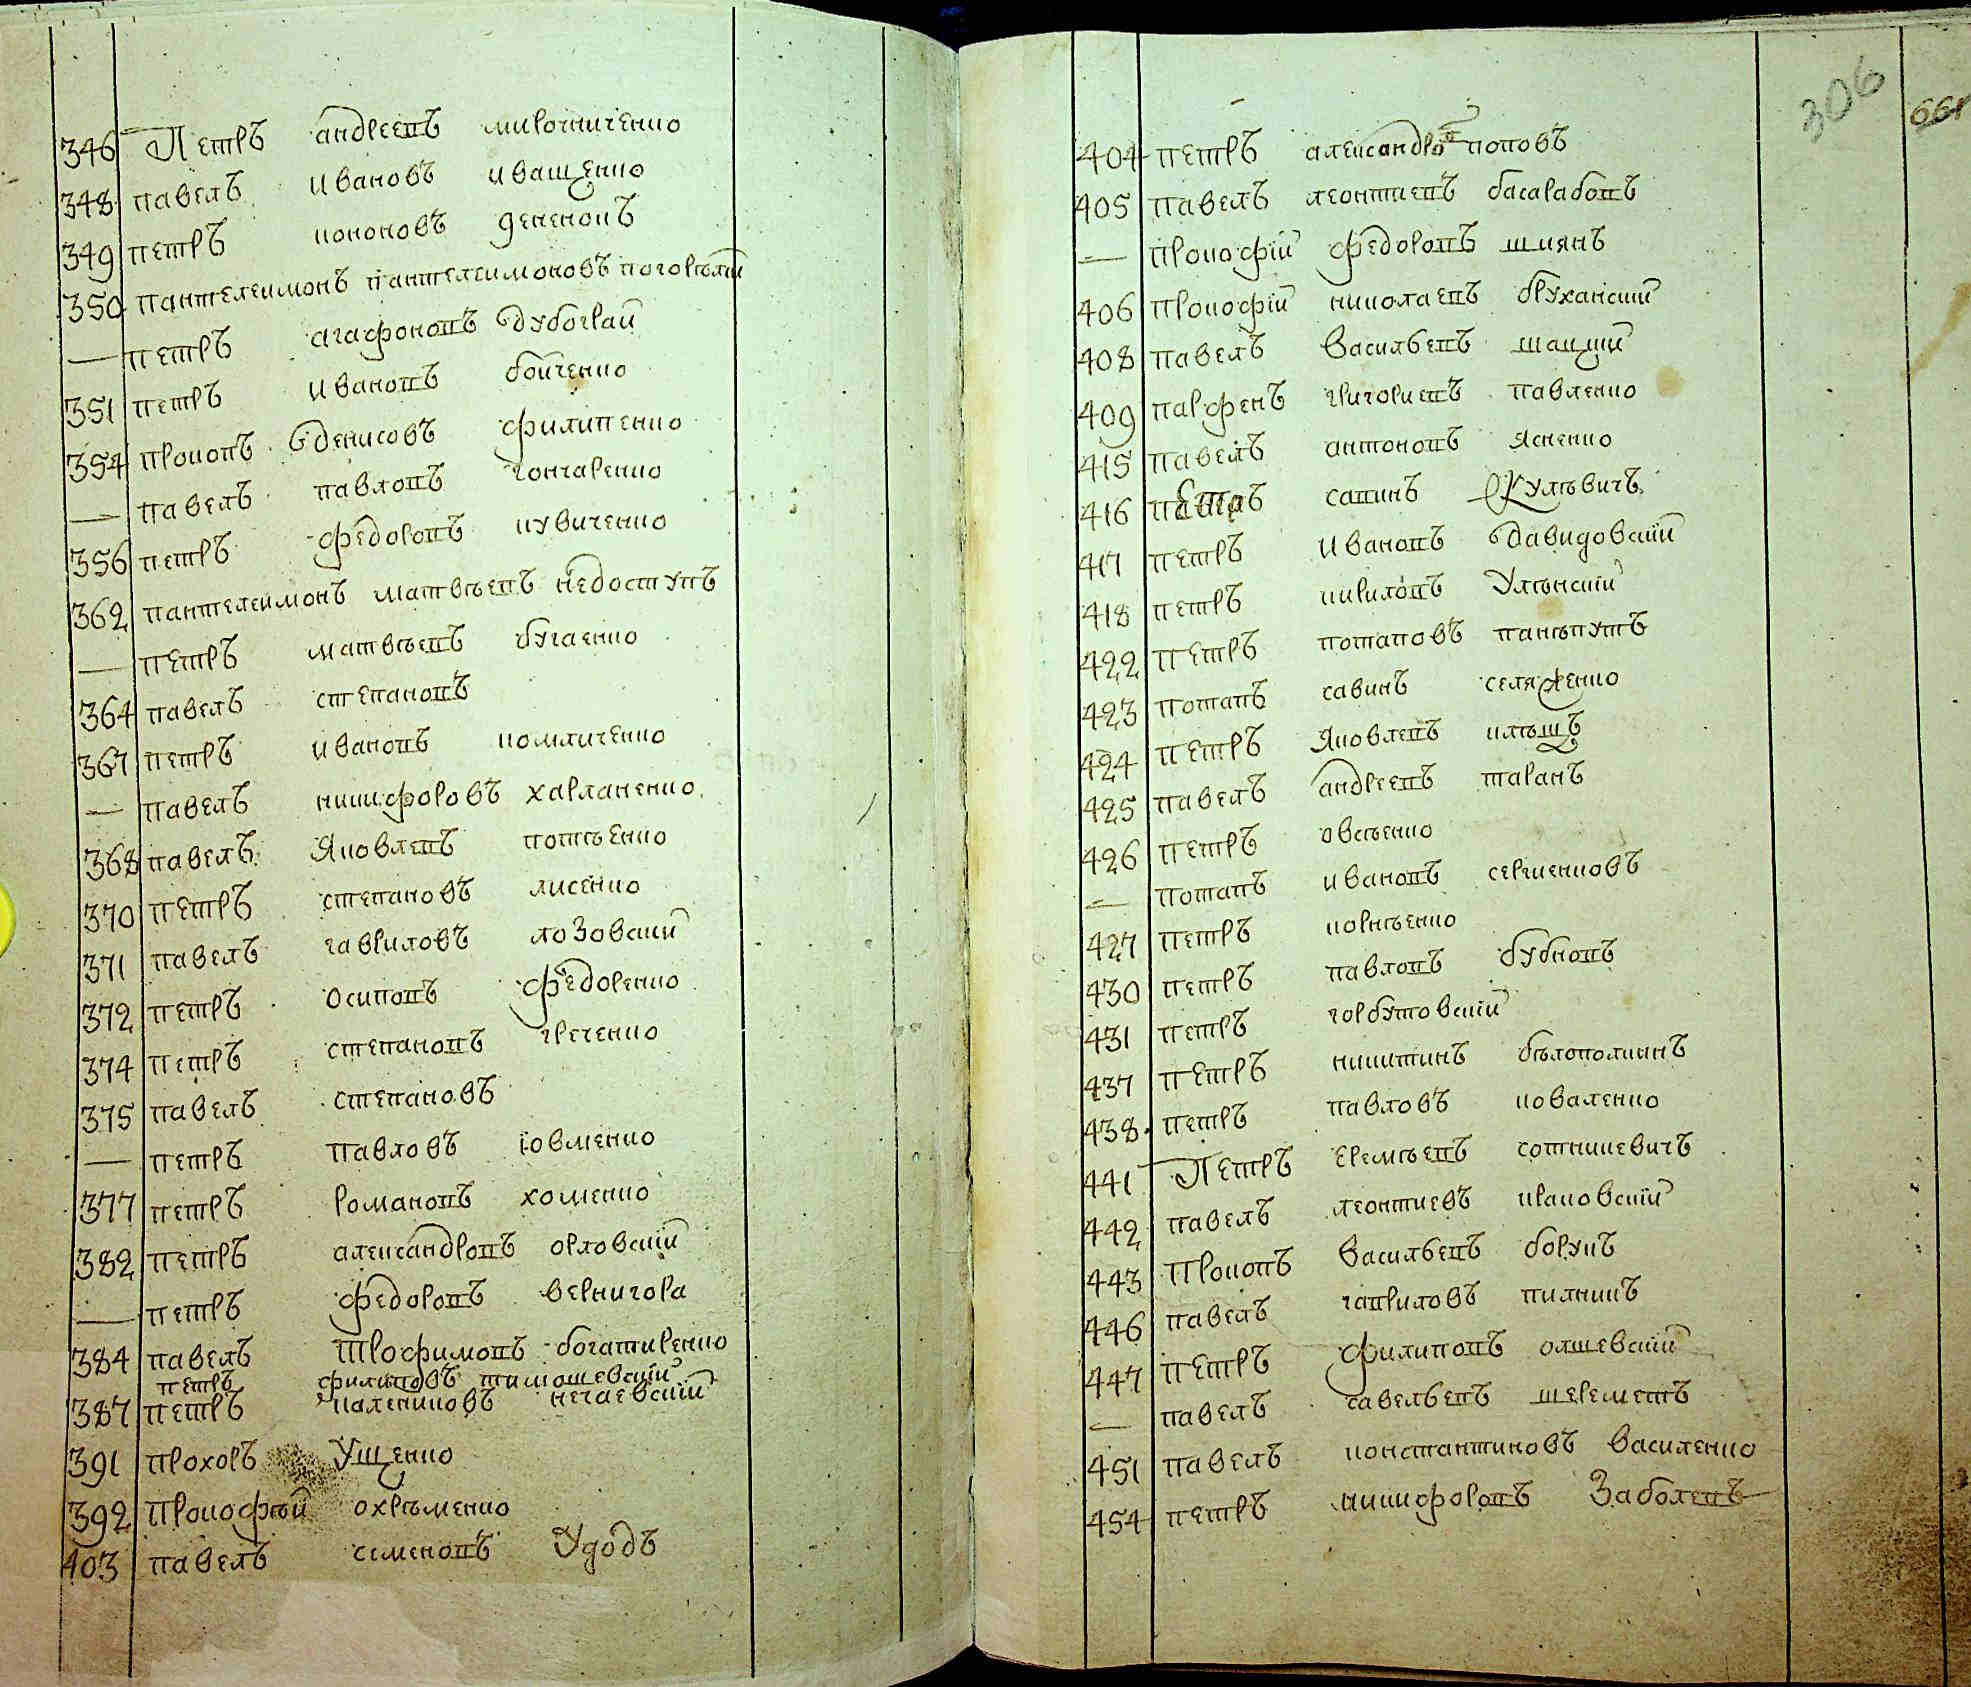 346 Петръ андреевъ мирочниченко
348 павелъ ивановъ иващенко
349 петръ кононовъ дененокъ
350 пантелеимонъ пантелеимоновъ погорѣлій
— петръ агафоновъ дубограй
351 петръ ивановъ бойченко
354 прокопъ денисовъ филипенко
— павелъ павловъ гончаренко
356 петръ федоровъ кувиченко
362 пантелеимонъ матвѣевъ недоступъ
— петръ матвѣевъ бугаенко
364 павелъ степановъ
367 петръ ивановъ комличенко
— павелъ никифоровъ харланенко
368 павелъ яковлевъ потѣенко
370 петръ степановъ лисенко
371 павелъ гавриловъ лозовский
372 петръ осиповъ федоренко
374 петръ степановъ греченко
375 павелъ степановъ
— петръ павловъ ювменко
377 петръ романовъ хоменко
382 петръ александровъ орловский
— петръ федоровъ вернигора
384 павелъ трофимовъ богатиренко
петръ филиповъ тимошевский
387 петръ калениковъ нечаевский
391 прохоръ ущенко
392 прокофѣй охрѣменко
403 павелъ семеновъ удодъ
306
661
404 петръ александровъ поповъ
405 павелъ леонтиевъ басарабовъ
— прокофій федоровъ шиянъ
406 прокофій николаевъ бруханский
408 павелъ васильевъ шацкий
409 парфенъ григориевъ павленко
415 павелъ антоновъ ясненко
416 петръ савинъ Кулѣвичъ
417 петръ ивановъ давидовский
418 петръ кириловъ улѣнский
422 петръ потаповъ панѣпутъ
423 потапъ савинъ селяженко
424 петръ яковлевъ клѣщъ
425 павелъ андреевъ таранъ
426 петръ овсѣенко
— потапъ ивановъ сергиенковъ
427 петръ корнѣенко
430 петръ павловъ бубновъ
431 петръ горбутовский
437 петръ никитинъ бѣлополкинъ
438 петръ павловъ коваленко
441 Петръ еремѣевъ сотникевичъ
442 павелъ леонтиевъ краковский
443 прокопъ васильевъ борукъ
446 павелъ гавриловъ пилникъ
447 петръ филиповъ олшевский
— павелъ савельевъ шереметъ
451 павелъ константиновъ василенко
454 петръ никифоровъ Заболевъ